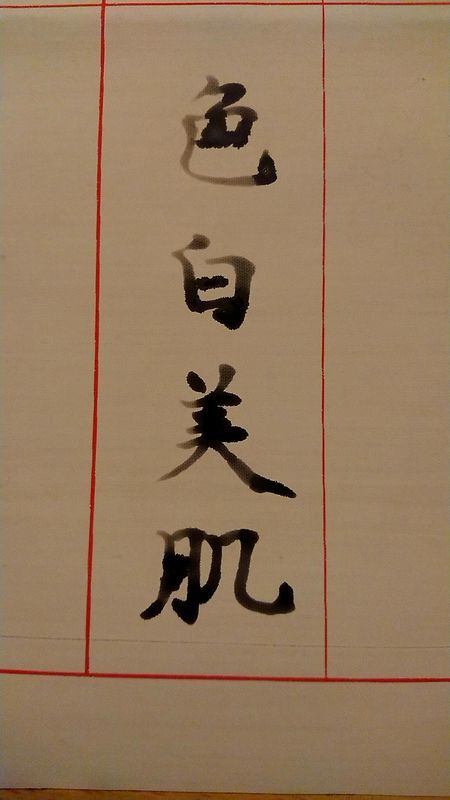 色白美肌